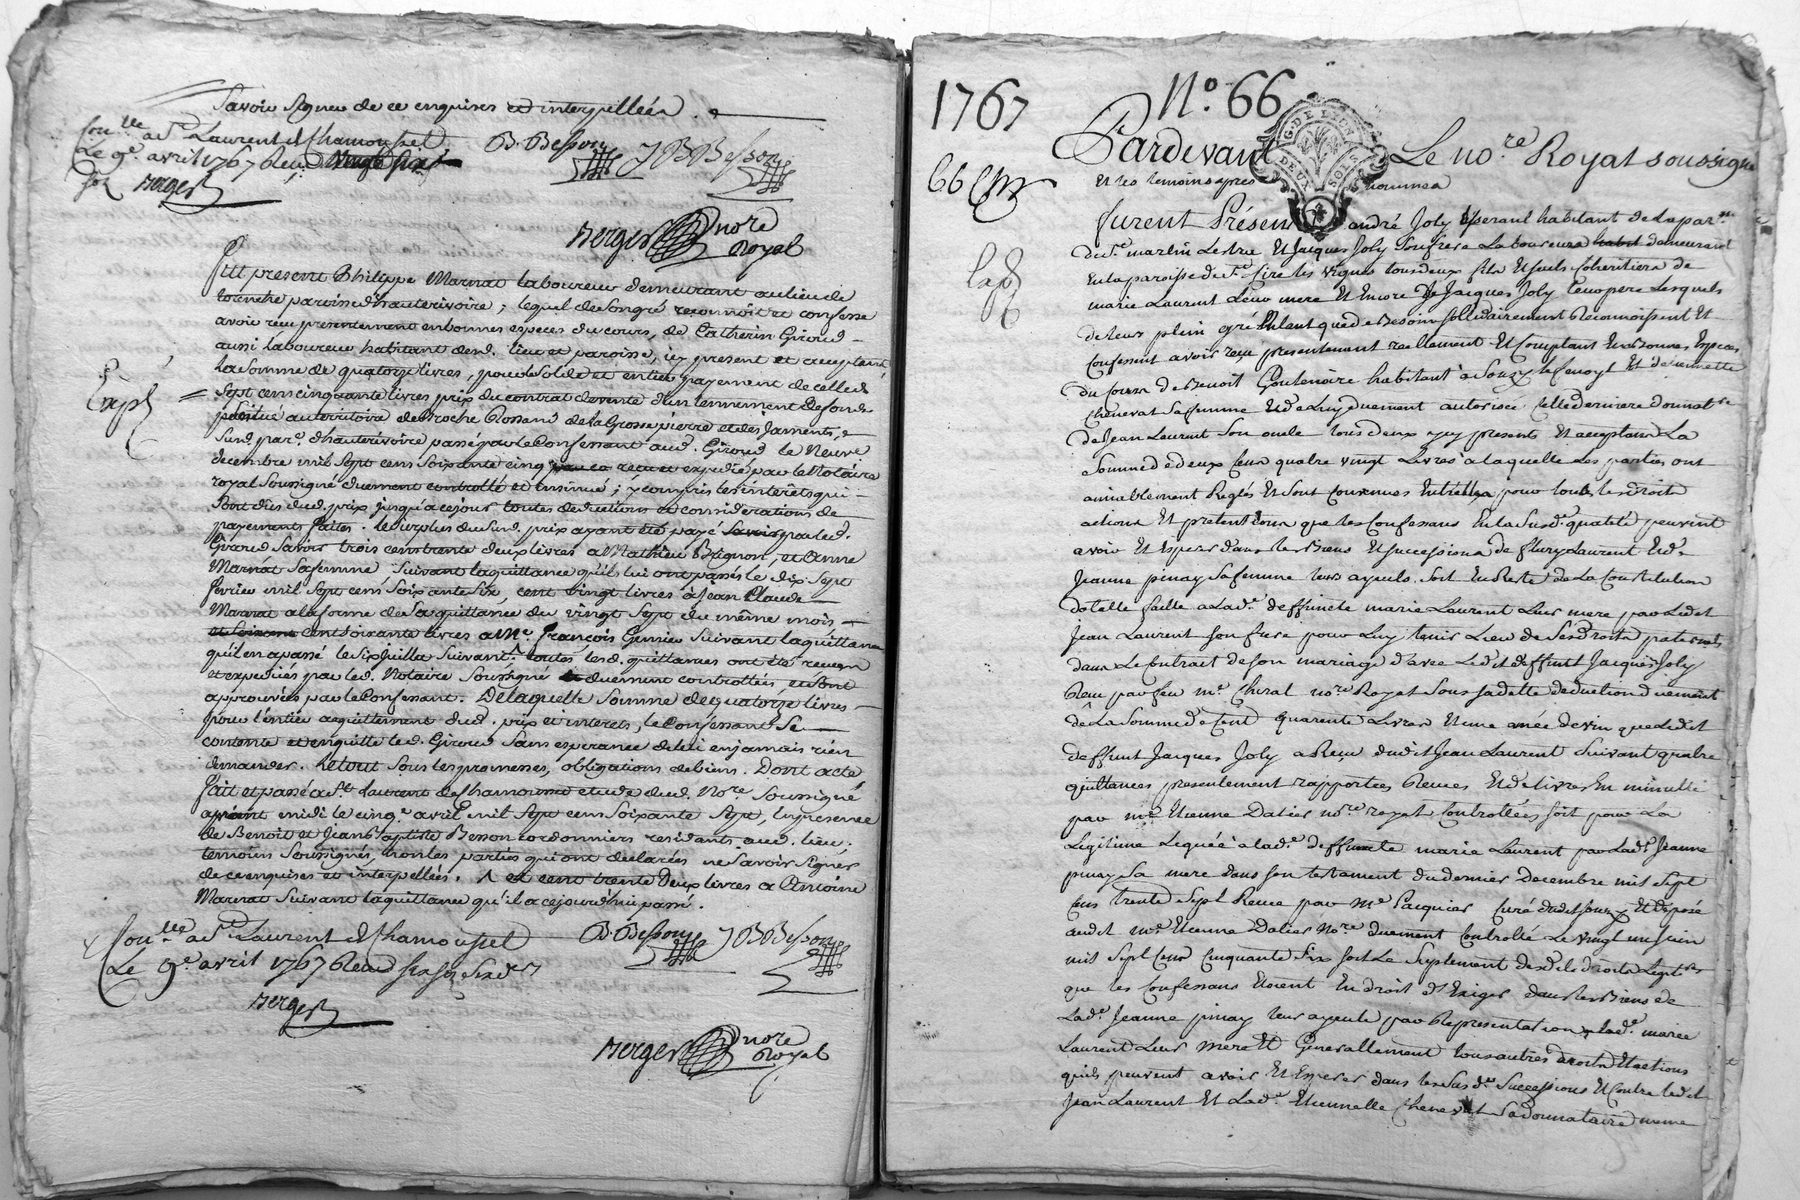 Savoir Signer de ce enquises et interpellées.
Con.lle a St Laurent de Chamousset
Le 9e avril 1767 Reçu
Berger
B. Besson J B Besson
Berger nore Royal
Fut present Philippe Marnat laboureur demeurant au lieu de
paroisse d'hauterivoire; lequel de Son gré reconnoit et confesse
avoir reçu presentement en bonnes especes du cours, de Catherin Giroud
aussi laboureur habitant dud. lieu et paroisse, icy present et acceptant
La Somme de quatorze livres, pour le Solde et entier payement de celle de
Expé
Sept cens cinquante livres prix du contrat de vente d'un tennement De fonds
Situé au territoire de Broche Rossand de la Grosse pierre et des Jaments,
Sud. par. d'hauterivoire passé par le Confessant aud. Giroud le Neuve
decembre mil Sept cens Soixante cinq reçu et expedié par le Notaire
royal Soussigné duement controllé et insinué; y compris les interêts qui
Sont dûs dud. prix jusqu'à ce jour toutes deductions et considerations de
payements faites. le Surplus du Sud. prix ayant eté payé par led.
Giroud Savoir trois cens trente deux livres a Mathieu Brignon, et Anne
Marnat Sa femme Suivant la quittance qu'ils lui ont passés le dix Sept
fevrier mil Sept cens Soixante Six, cent vingt livres à Jean Claude
Marnat a la forme de Sa quittance du vingt Sept du même mois
cent Soixante livres a Me François Grenier Suivant la quittance
qu'il en a passé le Six Juillet Suivant. toutes lesd. quittances ont été receues
et expediées par led. Notaire Soussigné duement controllées, et Sont
approuvées par le Confessant. De laquelle Somme de quatorze livres
pour l'entier acquittement dud. prix et interets, le Confessant Se
contente et en quitte led. Giroud Sans esperance de lui en jamais rien
demander. Le tout Sous les promesses, obligations de biens. Dont acte
Fait et passé a St Laurent de Chamousset etude dud. Nore Soussigné
apres midi le cinqe avril mil Sept cens Soixante Sept, En presence
de Benoit et Jean Baptiste Besson cordonniers residants aud. lieu.
temoins Soussignés, non les parties qui ont declarées ne Savoir Signer
de ce enquises et interpellées. Λ et cent trente Deux livres a Antoine
Marnat Suivant la quittance qu'il a ce jourd'hui passé.
Con.lle a St Laurent de Chamousset
Le 9e avril 1767 Reçu
Berger
B. Besson J B Besson
Berger nore Royal
1767 No. 66
G. DE LYON
DEUX SOLS
Pardevant Le no.re Royal soussigné
66
Et les temoins apres nommes
furent Présens andré Joly tisserant habitant de la par.sse
de St martin Lestra Et Jacques Joly Son frere Laboureur demeurant
En la paroisse de St Cire les vignes tous deux fils Et seuls Coheritiers de
marie Laurent Leur mere Et Encore de Jacques Joly Leur pere Lesquels
de leur plein gré Et tant que de Besoin sollidairement Reconnoissent Et
Confessent avoir reçu presentement reellement Et Comptant En Bonnes Especes
du Cours de Benoit Goutenoire habitant à Souzy Et d'Etiennette
Chenevat Sa femme Et de Luy duement autorisée Celle derniere donnat.re
de Jean Laurent Son oncle tous deux icy presents Et acceptans La
Somme de deux Cens quatre vingt Livres a laquelle Les parties ont
amiablement Reglés Et sont Convenus Entr'elles pour tous les Droits
actions Et pretentions que les Confessans En la Susd. qualité peuvent
avoir Et Esperer dans les Biens Et successions de fleury Laurent Et de
Jeanne pinay Sa femme leurs ayeuls. Soit En Reste de La Constitution
dotalle faitte a Lad.e deffuncte marie Laurent Leur mere par Ledit
Jean Laurent Son frere pour Luy tenir Lieu de Ses Droits paternels
dans Le Contrait de son mariage d'avec Ledit deffunt Jacques Joly
Reçu par feu me Cheral nore Royal Sous ladatte deduction duement
de La Somme de Cent quarente Livres Et une anée de vin que Ledit
deffunt Jacques Joly a Reçu dudit Jean Laurent Suivant quatre
quittances presentement rapportées Reçues Et delivrées En minutte
par me Etienne Dalier no.re royal Controllées soit pour La
Legitime Leguée à lad.e deffuncte marie Laurent par Lad.e Jeanne
pinay Sa mere dans son testament du dernier Decembre mil Sept
Cens trente Sept Reçeu par Me Pasquier Curé dudit Souzy Et deposé
audit me Etienne Dalier No.re duement Controllé Le vingt un juin
mil Sept Cens Cinquante Six soit Le Suplement desd. droits Legit.es
que les Confessans Etoient En droit d'Exiger dans les Biens de
Lad.e Jeanne pinay leur ayeule par Representation de lad.e marie
Laurent Leur mere Et Generallement tous autres droits Et actions
qu'ils peuvent avoir Et Esperer dans les Sus d.es Successions Et Contre ledit
Jean Laurent Et Lad.e Etiennette Chenevat Sa donnataire meme